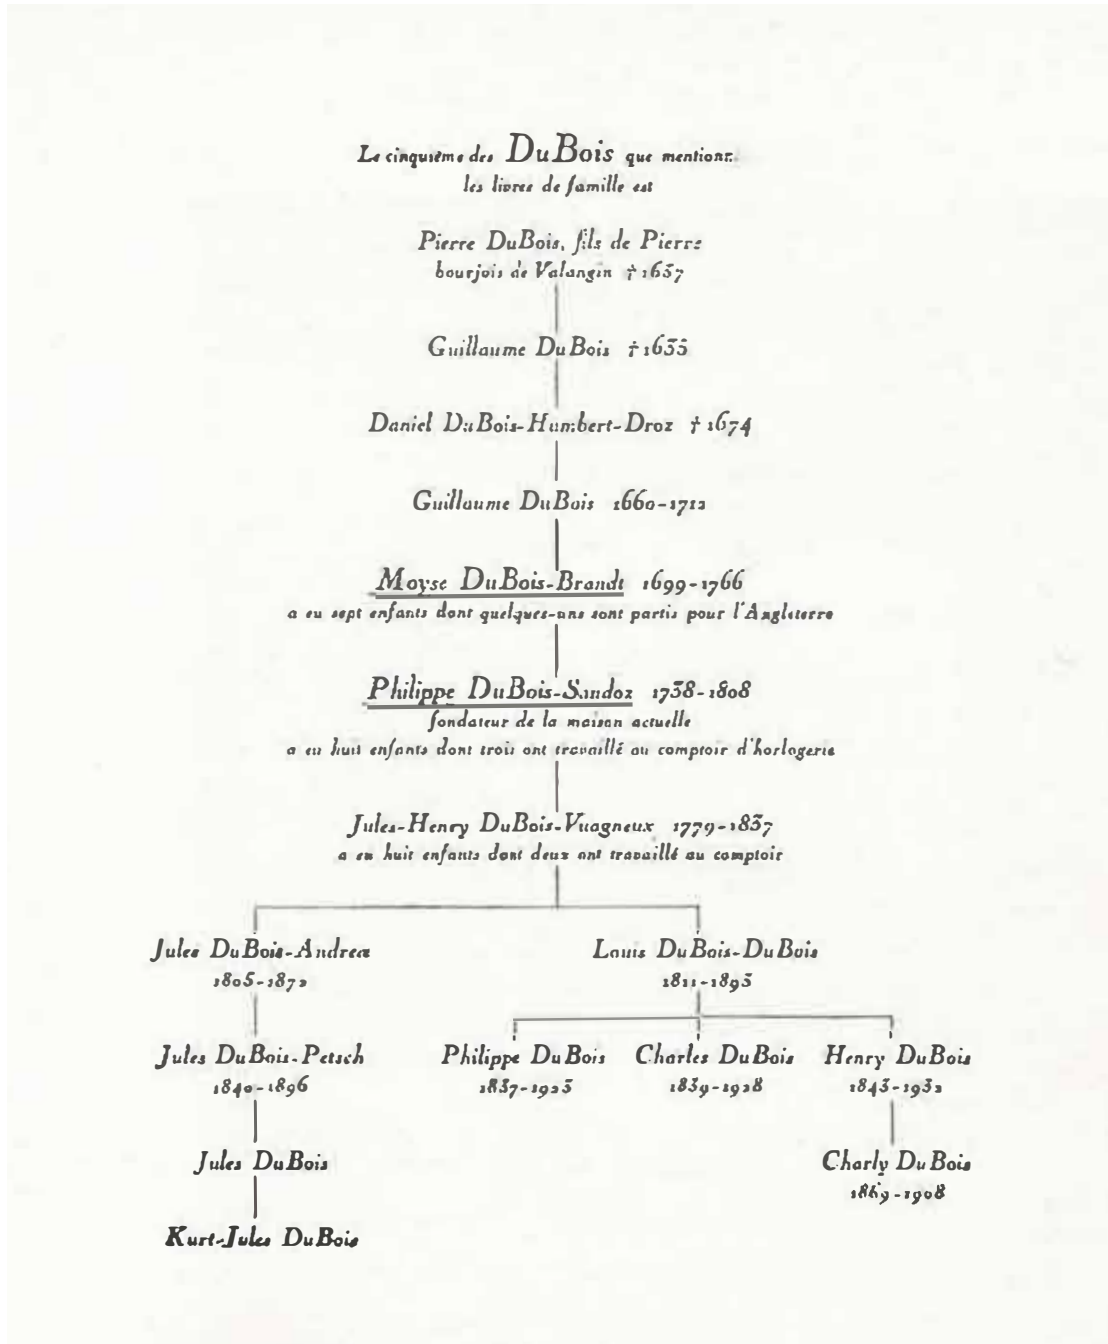 Le cinquième des DuBois que mentionn
les livres de famille est
Pierre DuBois, fils de Pierre
bourjois de Valangin † 1637
Guillaume DuBois † 1635
Daniel DuBois-Humbert-Droz † 1674
Guillaume DuBois 1660-1712
Moyse DuBois-Brandt 1699-1766
a eu sept enfants dont quelques-uns sont partis pour l'Angleterre
Philippe DuBois-Sandoz 1738-1808
fondateur de la maison actuelle
a eu huit enfants dont trois ont travaillé au comptoir d'horlogerie
Jules-Henry DuBois-Vuagneux 1779-1837
a eu huit enfants dont deux ont travaillé au comptoir
Jules DuBois-Andrea Louis DuBois-DuBois
1805-1872 1811-1893
Jules DuBois-Petsch Philippe DuBois Charles DuBois Henry DuBois
1840-1896 1837-1923 1839-1928 1843-1932
Jules DuBois Charly DuBois
1869-1908
Kurt-Jules DuBois